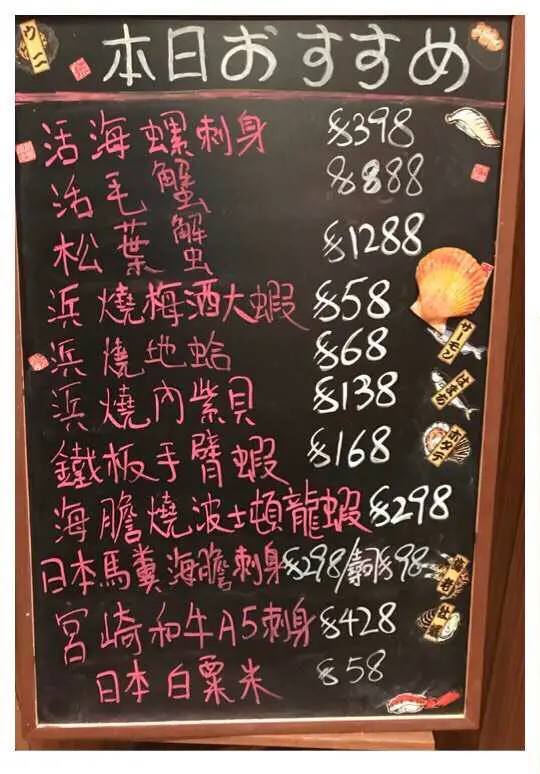 本日おすすめ
活海螺刺身 $398
活毛蟹 $888
松葉蟹 $1288
浜燒梅酒大蝦 $58
浜燒地蛤 $68
浜燒內紫貝 $138
鐵板手臂蝦 $168
海膽燒波士頓龍蝦 $298
日本馬糞海膽刺身 $298/壽司$98
宮崎和牛A5刺身 $428
日本白粟米 $58
ウニ
サーモン